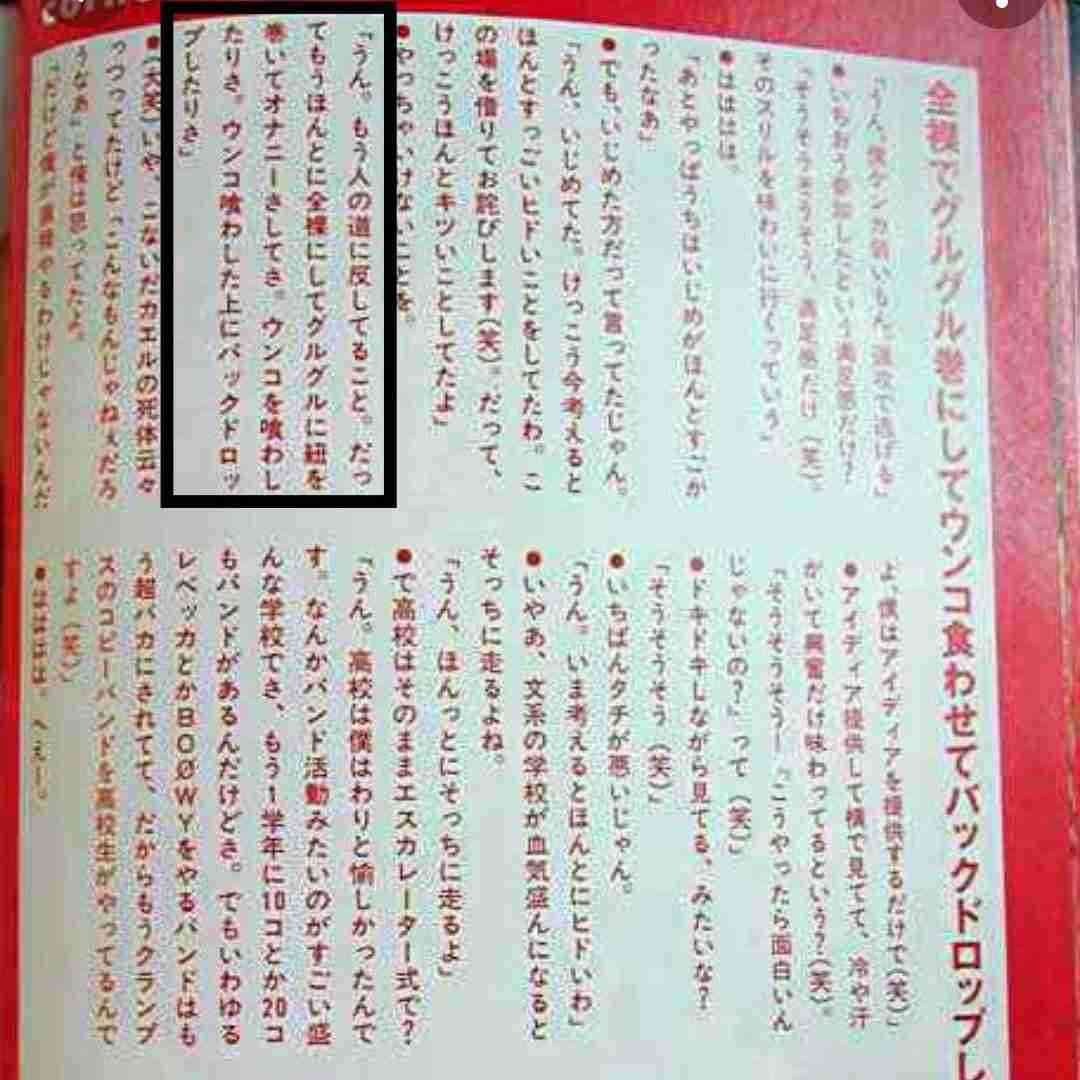 全裸でグルグル巻にしてウンコ食わせてバックドロップし
「うん。僕ケンカ弱いもん。速攻で逃げる」
●いちおう参加したという満足感だけ？
「そうそうそうそう、満足感だけ（笑）。
そのスリルを味わいに行くっていう」
●はははは。
「あとやっぱうちはいじめがほんとすごか
ったなあ」
●でも、いじめた方だって言ってたじゃん。
「うん。いじめてた。けっこう今考えると
ほんとすっごいヒドいことをしてたわ。こ
の場を借りてお詫びします（笑）。だって、
けっこうほんとキツいことしてたよ」
●やっちゃいけないことを。
「うん。もう人の道に反してること。だっ
てもうほんとに全裸にしてグルグルに紐を
巻いてオナニーさしてさ。ウンコを喰わし
たりさ。ウンコ喰わした上にバックドロッ
プしたりさ」
●（大笑）いや、こないだカエルの死体云々
っつってたけど「こんなもんじゃねぇだろ
うなあ」と僕は思ってたよ。
「だけど僕が直接やるわけじゃないんだ
よ、僕はアイディアを提供するだけで（笑）」
●アイディア提供して横で見てて、冷や汗
かいて興奮だけ味わってるという？（笑）。
「そうそうそう！『こうやったら面白いん
じゃないの？』って（笑）」
●ドキドキしながら見てる、みたいな？
「そうそうそう（笑）」
●いちばんタチが悪いじゃん。
「うん。いま考えるとほんとにヒドいわ」
●いやあ、文系の学校が血気盛んになると
そっちに走るよね。
「うん、ほんっとにそっちに走るよ」
●で高校はそのままエスカレーター式で？
「うん。高校は僕はわりと愉しかったんで
す。なんかバンド活動みたいのがすごい盛
んな学校でさ、もう1学年に10コとか20コ
もバンドがあるんだけどさ。でもいわゆる
レベッカとかBOØWYをやるバンドはも
う超バカにされてて、だからもうクランプ
スのコピーバンドを高校生がやってるんで
すよ（笑）」
●はははは。へぇー。